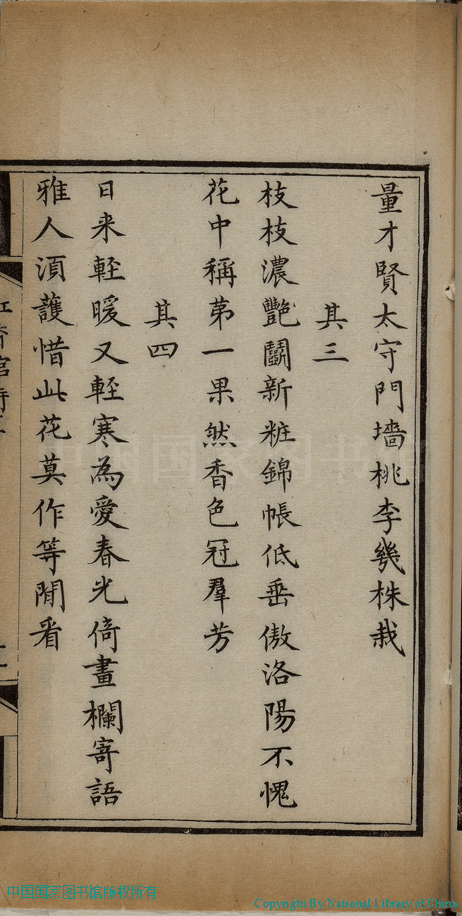 量才賢太守門墻桃李幾株栽
其三
枝枝濃艷鬭新粧錦帳低垂傲洛陽不愧
花中稱苐一果然香色冠羣芳
其四
日来輕暖又輕寒為愛春光倚畫欄寄語
雅人湏護惜此花莫作等閒看
中国国家图书馆
中国国家图书馆版权所有
Copyright By National Library of China